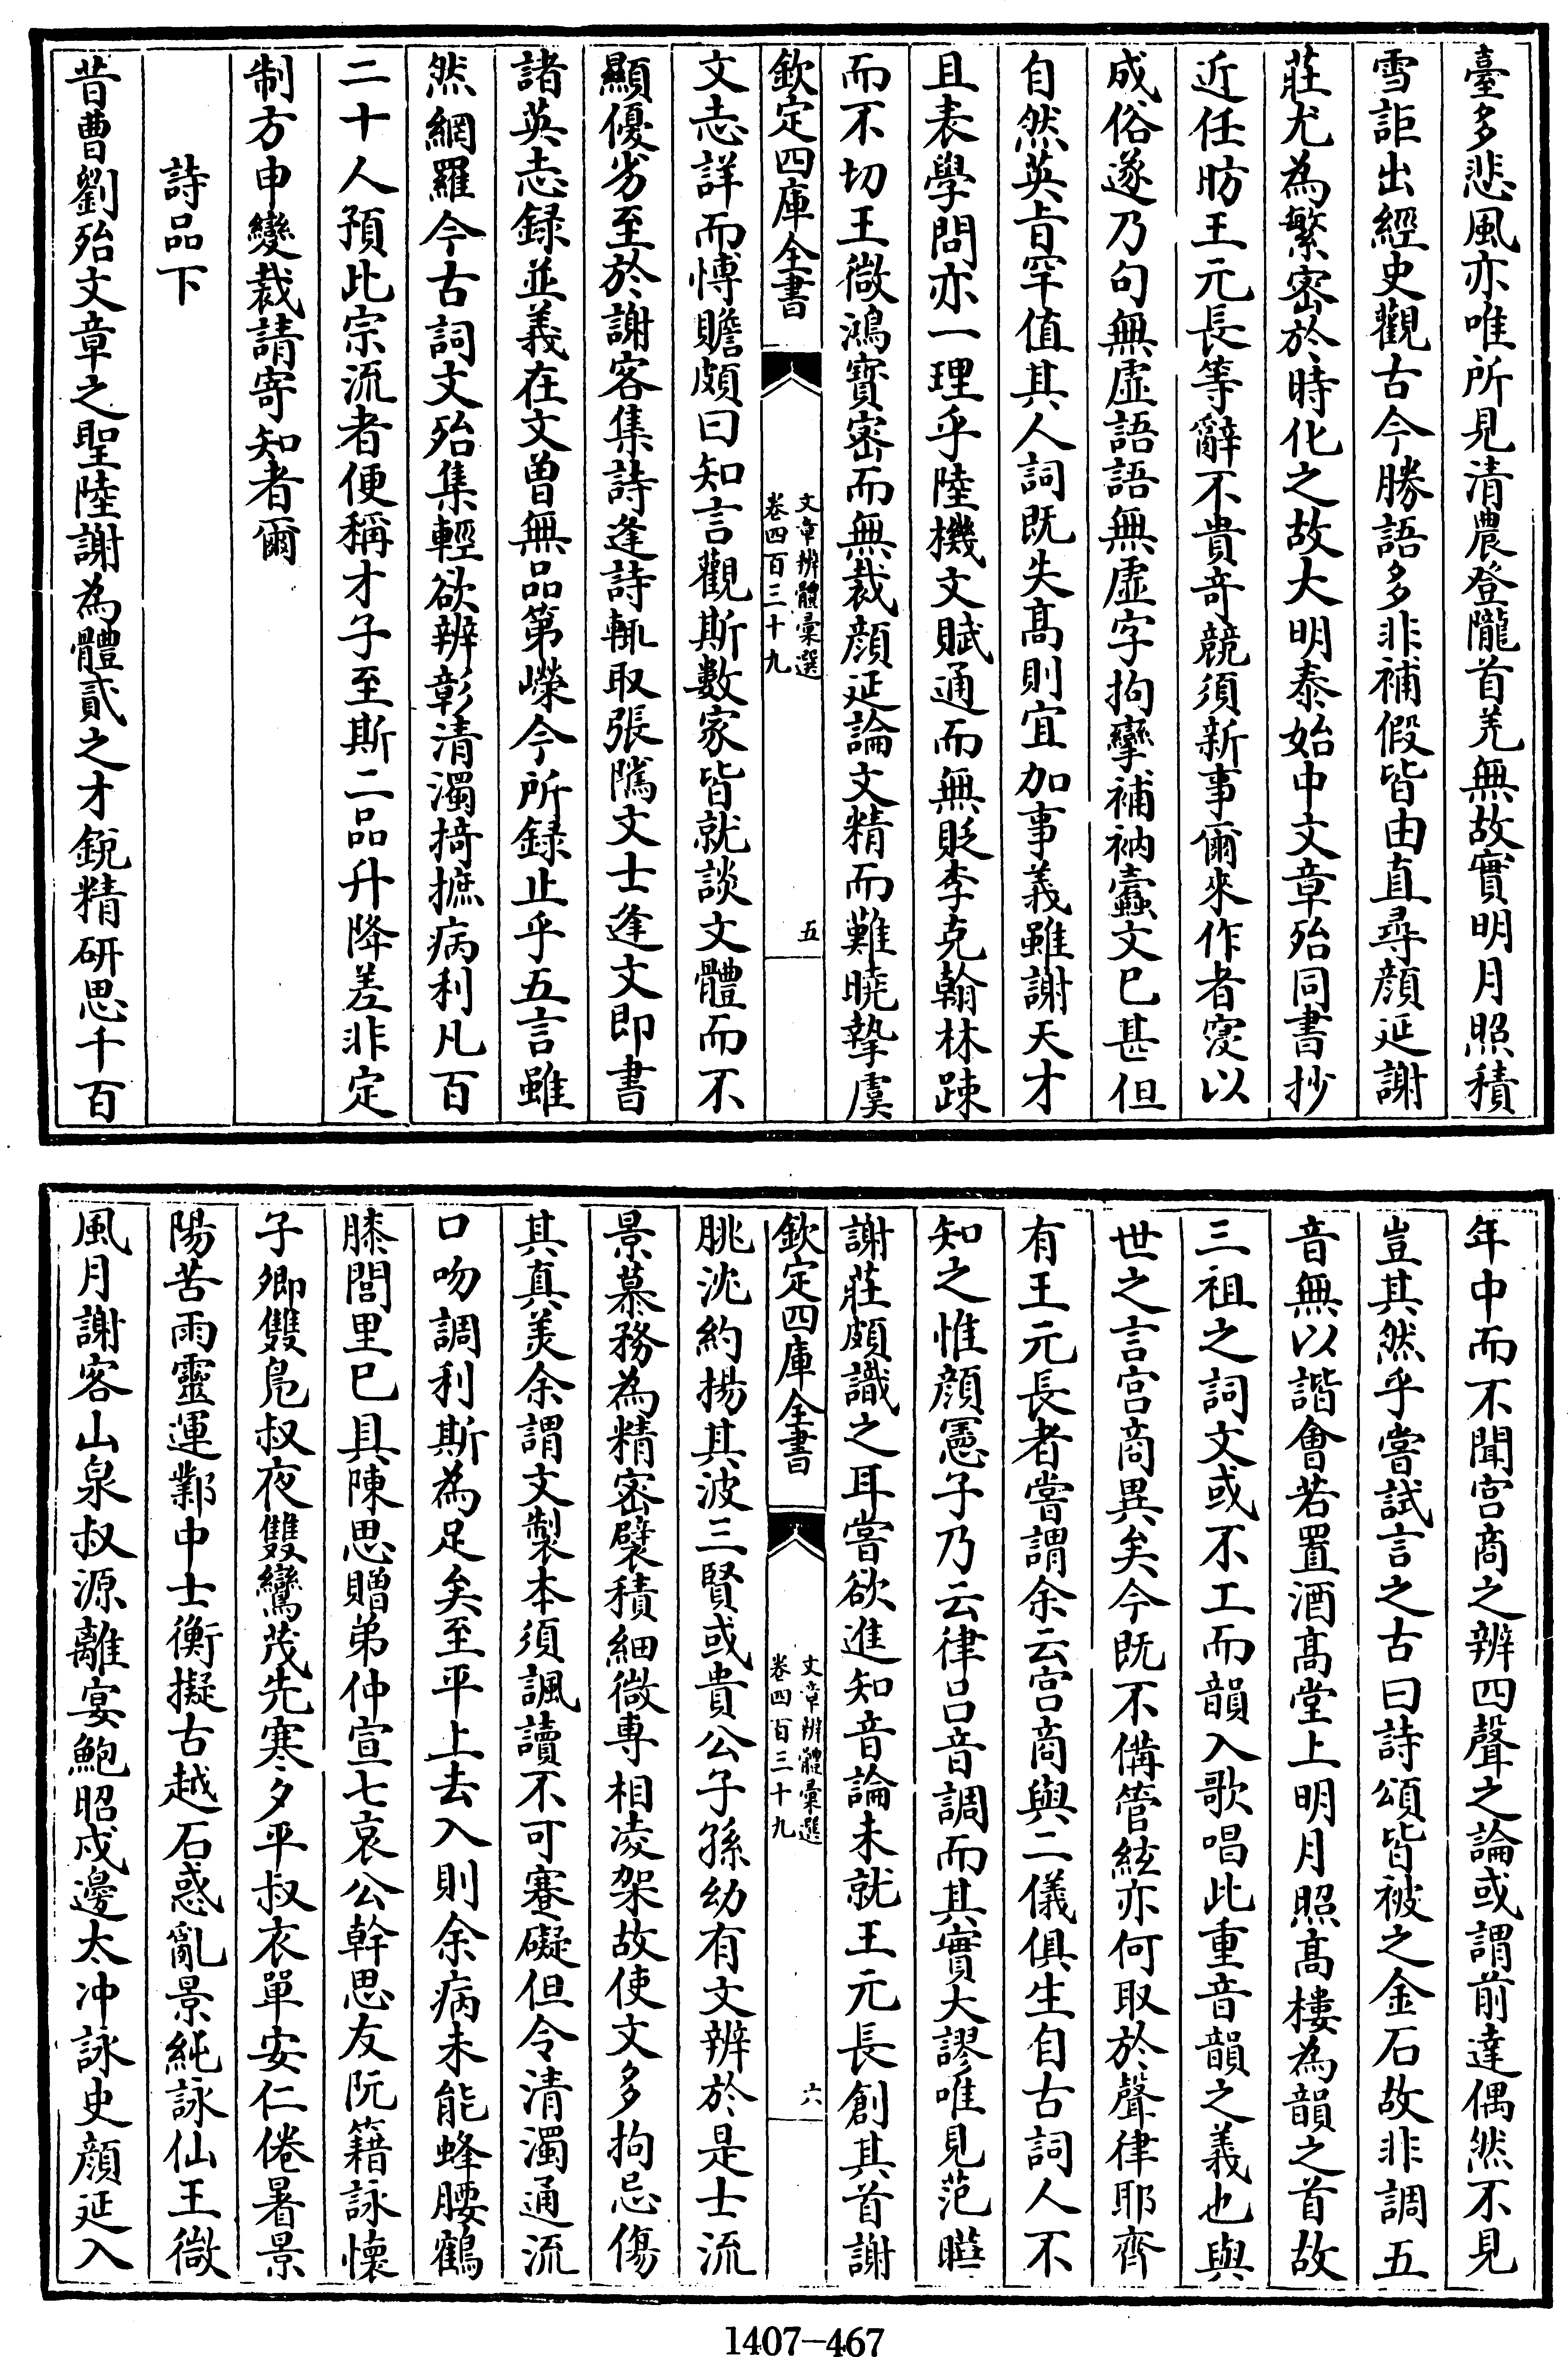 臺多悲風亦唯所見清農登隴首羌無故實明月照積
雪詎出經史觀古今勝語多非補假皆由直尋顔延謝
莊尤為繁密於時化之故大明泰始中文章殆同書抄
近任昉王元長等辭不貴竒競須新事爾來作者寖以
成俗遂乃句無虚語語無虚字拘攣補衲蠧文已甚但
自然英㫖罕值其人詞既失髙則宜加事義雖謝天才
且表學問亦一理乎陸機文賦通而無貶李克翰林踈
而不切王微鴻寳密而無裁顔延論文精而難曉摯虞
欽定四庫全書 文章辨體彚選 卷四百三十九 五
文志詳而博贍頗曰知言觀斯數家皆就談文體而不
顯優劣至於謝客集詩逢詩輒取張隲文士逢文即書
諸英志録並義在文曽無品第嶸今所録止乎五言雖
然網羅今古詞文殆集輕欲辨彰清濁掎摭病利凡百
二十人預此宗流者便稱才子至斯二品升降差非定
制方申變裁請寄知者爾
詩品下
昔曹劉殆文章之聖陸謝為體貳之才鋭精研思千百
年中而不聞宫商之辨四聲之論或謂前達偶然不見
豈其然乎嘗試言之古曰詩頌皆被之金石故非調五
音無以諧會若置酒髙堂上明月照髙樓為韻之首故
三祖之詞文或不工而韻入歌唱此重音韻之義也與
世之言宫商異矣今既不備管絃亦何取於聲律耶齊
有王元長者嘗謂余云宫商與二儀俱生自古詞人不
知之惟顔憲子乃云律吕音調而其實大謬唯見范曄
謝莊頗識之耳嘗欲進知音論未就王元長創其首謝
欽定四庫全書 文章辨體彚選 卷四百三十九 六
朓沈約揚其波三賢或貴公子孫幼有文辨於是士流
景慕務為精密襞積細微専相凌架故使文多拘忌傷
其真美余謂文製本須諷讀不可蹇礙但令清濁通流
口吻調利斯為足矣至平上去入則余病未能蜂腰鶴
膝閭里已具陳思贈弟仲宣七哀公幹思友阮籍詠懷
子卿雙鳬叔夜雙鸞茂先寒夕平叔衣單安仁倦暑景
陽苦雨靈運鄴中士衡擬古越石惑亂景純詠仙王微
風月謝客山泉叔源離宴鮑昭戍邊太冲詠史顔延入
1407-467